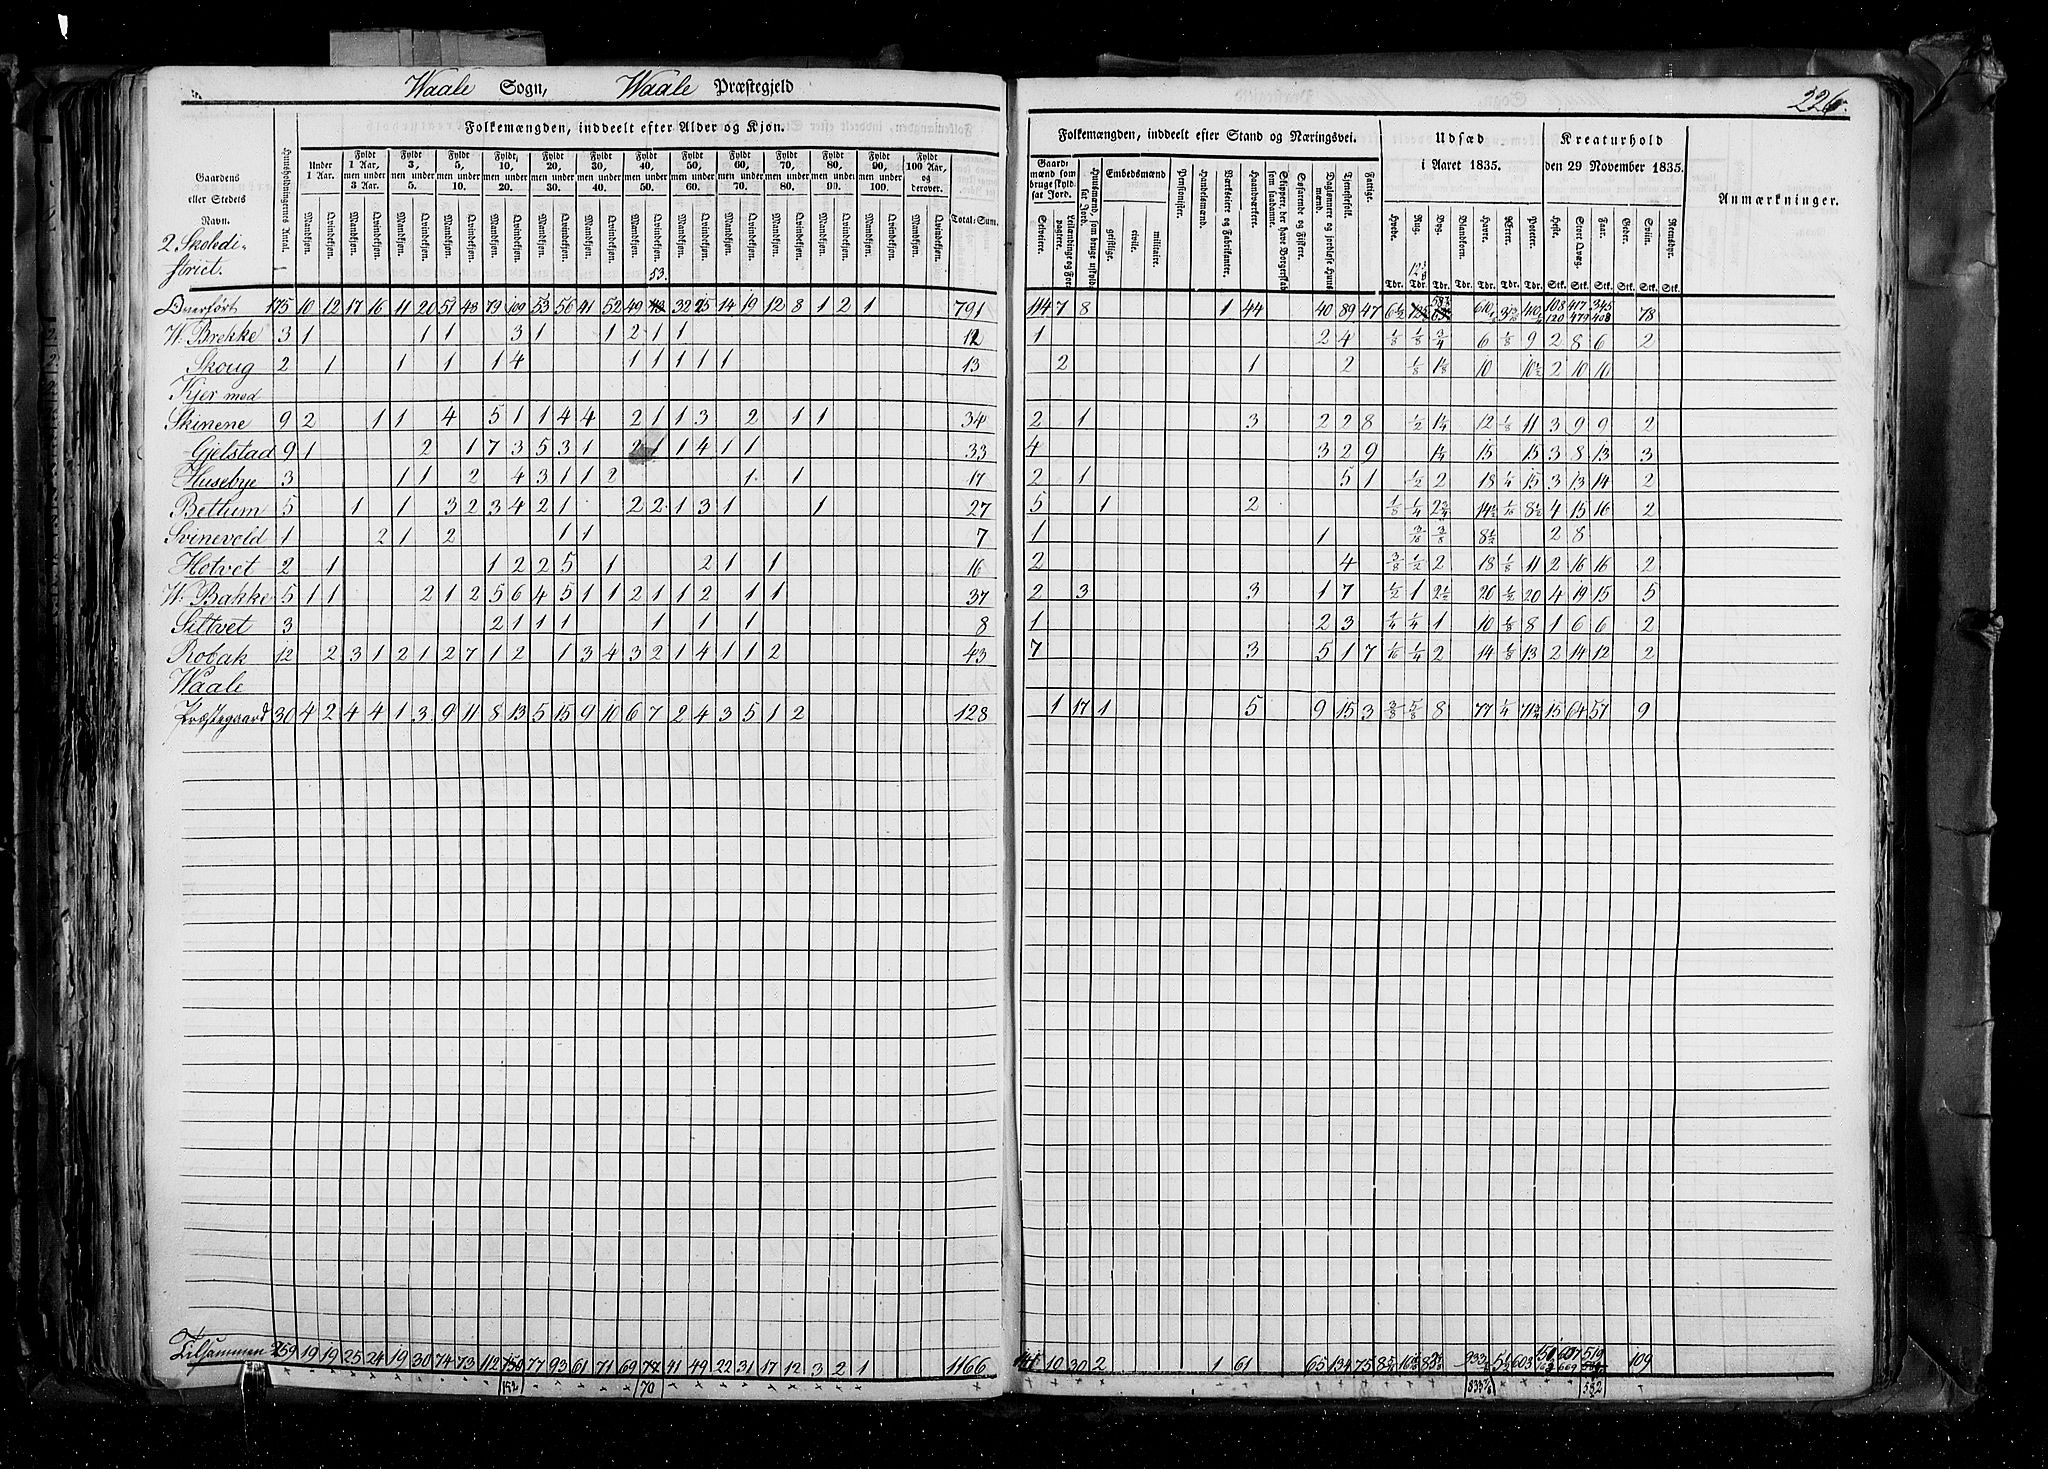 Waale Sogn, Waale Præstegjeld
226.
Gaardens eller Stedets Navn.
Huusholdningernes Antal.
Folkemængden, inddeelt efter Alder og Kjøn.
Under 1 Aar.
Fyldt 1 Aar, men under 3 Aar.
Fyldt 3, men under 5.
Fyldt 5, men under 10.
Fyldt 10, men under 20.
Fyldt 20, men under 30.
Fyldt 30, men under 40.
Fyldt 40, men under 50.
Fyldt 50, men under 60.
Fyldt 60, men under 70.
Fyldt 70, men under 80.
Fyldt 80, men under 90.
Fyldt 90, men under 100.
Fyldt 100 Aar, og derover.
Mandkjøn. Qvindekjøn.
Total-Sum.
Folkemængden, inddeelt efter Stand og Næringsvei.
Gaardmænd som bruge skyldsat Jord.
Selveiere.
Leilændinge og Forpagtere.
Huusmænd, som bruge uskyldsat Jord.
Embedsmænd
geistlige. civile. militaire.
Pensionister.
Handelsmænd.
Værkseiere og Fabrikanter.
Haandværkere.
Skippere, der have Borgerskab som saadanne.
Søfarende og Fiskere.
Daglønnere og jordløse Huusmænd.
Tjenestefolk.
Fattige.
Udsæd i Aaret 1835.
Hvede. Rug. Byg. Blandkorn. Havre. Erter. Poteter.
Tdr. Tdr. Tdr. Tdr. Tdr. Tdr. Tdr.
Kreaturhold den 29 November 1835.
Heste. Stor-Qvæg. Faar. Geder. Sviin. Reensdyr.
Stk. Stk. Stk. Stk. Stk. Stk.
Anmærkninger.
2 Skoledistrict.
53.
Overført 175 10 12 17 16 11 20 51 48 79 109 53 56 41 52 49 32 25 14 19 12 8 1 2 1 791 114 7 8 1 44 40 89 47 6½ 78
W. Brekke 3 1 1 1 3 1 1 2 1 1 12 1 2 4 ⅛ ⅛ ¾ 6 ⅛ 9 2 8 6 2
Skoug 2 1 1 1 1 4 1 1 1 1 1 13 2 1 2 ⅛ 1⅛ 10 10½ 2 10 10
Kjer med
Skinene 9 2 1 1 4 5 1 1 4 4 2 1 1 3 2 1 1 34 2 1 3 2 2 8 ½ 1¼ 12 ⅛ 11 3 9 9 2
Gjelstad 9 1 2 1 7 3 5 3 1 2 1 1 4 1 1 33 4 3 2 9 1¼ 15 15 3 8 13 3
Husebye 3 1 1 2 4 3 1 1 2 1 1 17 2 1 5 1 ½ 2 18 ¼ 15 3 13 14 2
Bettum 5 1 1 3 2 3 4 2 1 2 2 1 3 1 1 27 5 1 2 ⅛ ¼ 2¾ 14½ 8½ 4 15 16 2
Svineveld 1 2 1 2 1 1 7 1 1 ⅜ 8½ 2 8
Hotvet 2 1 1 2 2 5 1 2 1 1 16 2 4 ⅜ ½ 2 18 ⅛ 11 2 16 16 2
W. Bakke 5 1 1 2 1 2 5 6 4 5 1 1 2 1 1 2 1 1 37 2 3 3 1 7 ½ 1 2½ 20 ½ 20 4 19 15 5
Siltvet 3 2 1 1 1 1 1 1 8 1 2 3 ¼ ¼ 1 10 ⅛ 8 1 6 6 2
Robak 12 2 3 1 2 1 2 7 1 2 1 3 4 3 2 1 4 1 1 2 43 7 3 5 1 7 ¼ 2 14 ⅛ 13 2 14 12 2
Waale
Præstegaard 30 4 2 4 4 1 3 9 11 8 13 5 15 9 10 6 7 2 4 3 5 1 2 128 1 17 1 5 9 15 3 ⅜ ⅝ 8 77 ¼ 71¾ 15 64 57 9
Tilsammen 259 19 19 25 24 19 30 74 73 112 77 93 61 71 69 41 49 22 31 17 12 3 2 1 1166 141 10 30 2 1 61 65 134 75 603 607 519 109
152 70 582